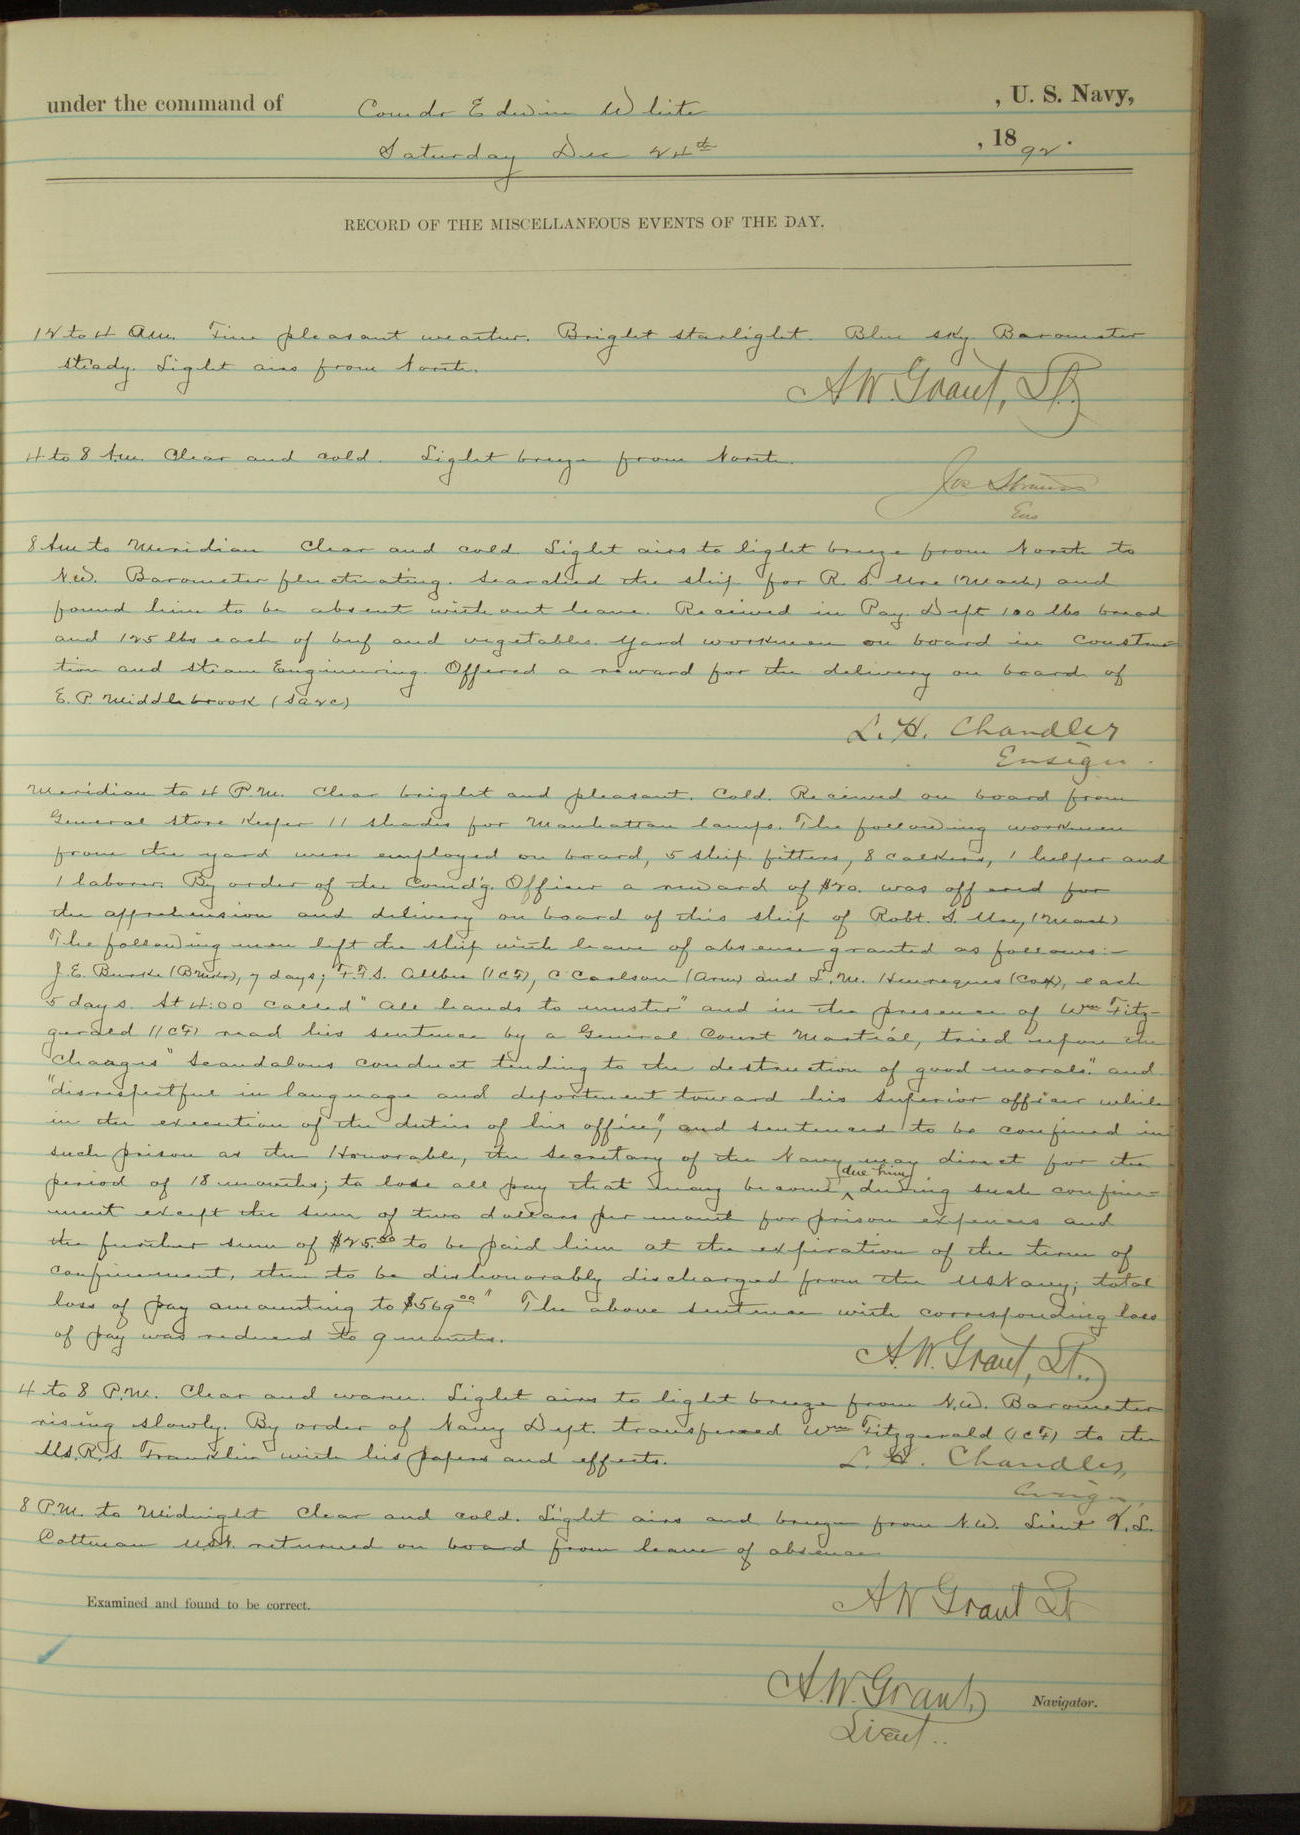 under the command of Comdr Edwin White , U. S. Navy,
Saturday Dec 24th , 1892.
RECORD OF THE MISCELLANEOUS EVENTS OF THE DAY.
12 to 4 Am. Fine pleasant weather. Bright starlight. Blue sky Barometer
steady. Light airs from North.
A W. Grant, Lt.
4 to 8 Am. Clear and cold. Light breeze from North.
Jos Strauss
Ens
8 Am to Meridian Clear and cold Light airs to light breeze from North to
N.W. Barometer fluctuating. Searched the ship for R. S. Ure (Mach) and
found him to be absent without leave. Received in Pay. Dept 100 lbs bread
and 125 lbs each of beef and vegetables. Yard workmen on board in Construc-
tion and Steam Engineering. Offered a reward for the delivery on board of
E. P. Middlebrook (Sa2c)
L. H. Chandler
Ensign.
Meridian to 4 P.M. Clear bright and pleasant. Cold. Received on board from
General Store Keeper 11 shades for Manhattan lamps. The following workmen
from the yard were employed on board, 5 ship fitters, 8 calkers, 1 helper and
1 laborer. By order of the Comd'g. Officer a reward of $20. was offered for
the apprehension and delivery on board of this ship of Robt. S. Ure, (Mach)
The following men left the ship with leave of absence granted as follows:-
J. E. Burke (Bmkr), 7 days; F.F.S. Allber (1CF), C Carlson (Arm) and L. M. Henreques (Cox), each
5 days. At 4:00 called "all hands to muster" and in the presence of Wm Fitz-
gerald (1CF) read his sentence by a General Court Martial, tried upon the
charges "Scandalous conduct tending to the destruction of good morals." and
"disrespectful in language and deportment toward his superior officer while
in the execution of the duties of his office", and sentenced "to be confined in
such prison as the Honorable, the Secretary of the Navy may direct for the
period of 18 months; to lose all pay that may become due him during such confine-
ment except the sum of two dollars per month for prison expenses and
the further sum of $25.00 to be paid him at the expiration of the term of
confinement, then to be dishonorably discharged from the US Navy; total
loss of pay amounting to $569.00" The above sentence with corresponding loss
of pay was reduced to 9 months.
A. W. Grant, Lt.
4 to 8 P.M. Clear and warm. Light airs to light breeze from N.W. Barometer
rising slowly. By order of Navy Dept. transferred Wm Fitzgerald (1CF) to the
U.S.R.S. Franklin with his papers and effects.
L. H. Chandler,
Ensign,
8 P.M. to Midnight Clear and cold. Light airs and breeze from N.W. Lieut V. L.
Cottman U.S.N. returned on board from leave of absence
A W Grant Lt
Examined and found to be correct.
A. W. Grant,
Lieut.. Navigator.